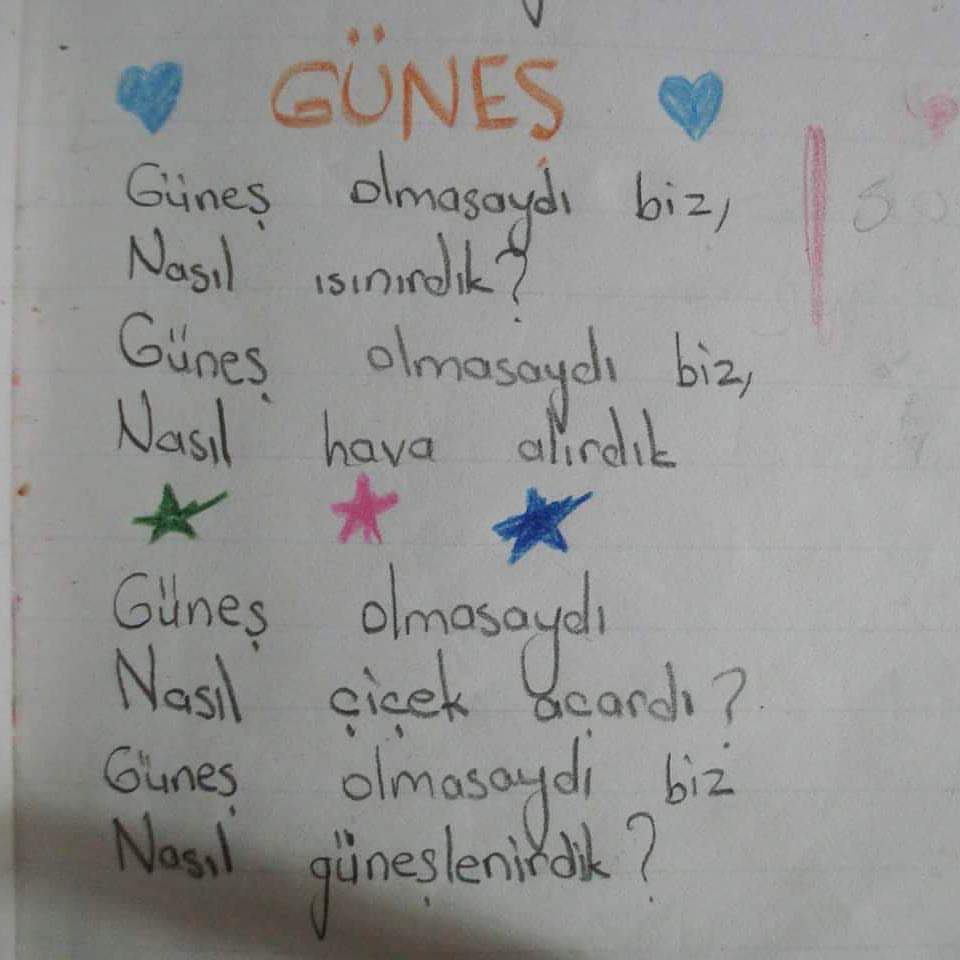 GÜNEŞ
Güneş olmasaydı biz,
Nasıl ısınırdık?
Güneş olmasaydı biz,
Nasıl hava alırdık
Güneş olmasaydı
Nasıl çiçek açardı?
Güneş olmasaydı biz
Nasıl güneşlenirdik?